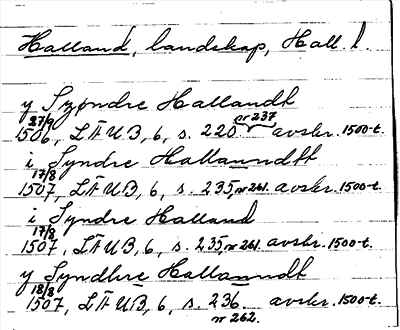 Halland, landskap, Hall. l.
y Syøndre Hallandt
27/9 1506, LÄUB, 6, s. 220 nr 237, avskr. 1500-t.
i Syndre Hallanndtt
17/8 1507, LÄUB, 6, s. 235, nr 261. avskr. 1500-t.
i Syndre Halland
17/8 1507, LÄUB, 6, s. 235, nr 261. avskr. 1500-t.
y Syndhre Hallanndt
18/8 1507, LÄUB, 6, s. 236. avskr. 1500-t.
nr 262.